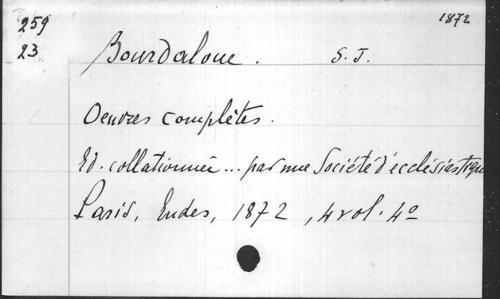 259 1872
23 Bourdaloue. S. J.
Oeuvres complètes.
Ed. collationnée... par une Société d'ecclésiastiques
Paris, Eudes, 1872, 4 vol. 4º